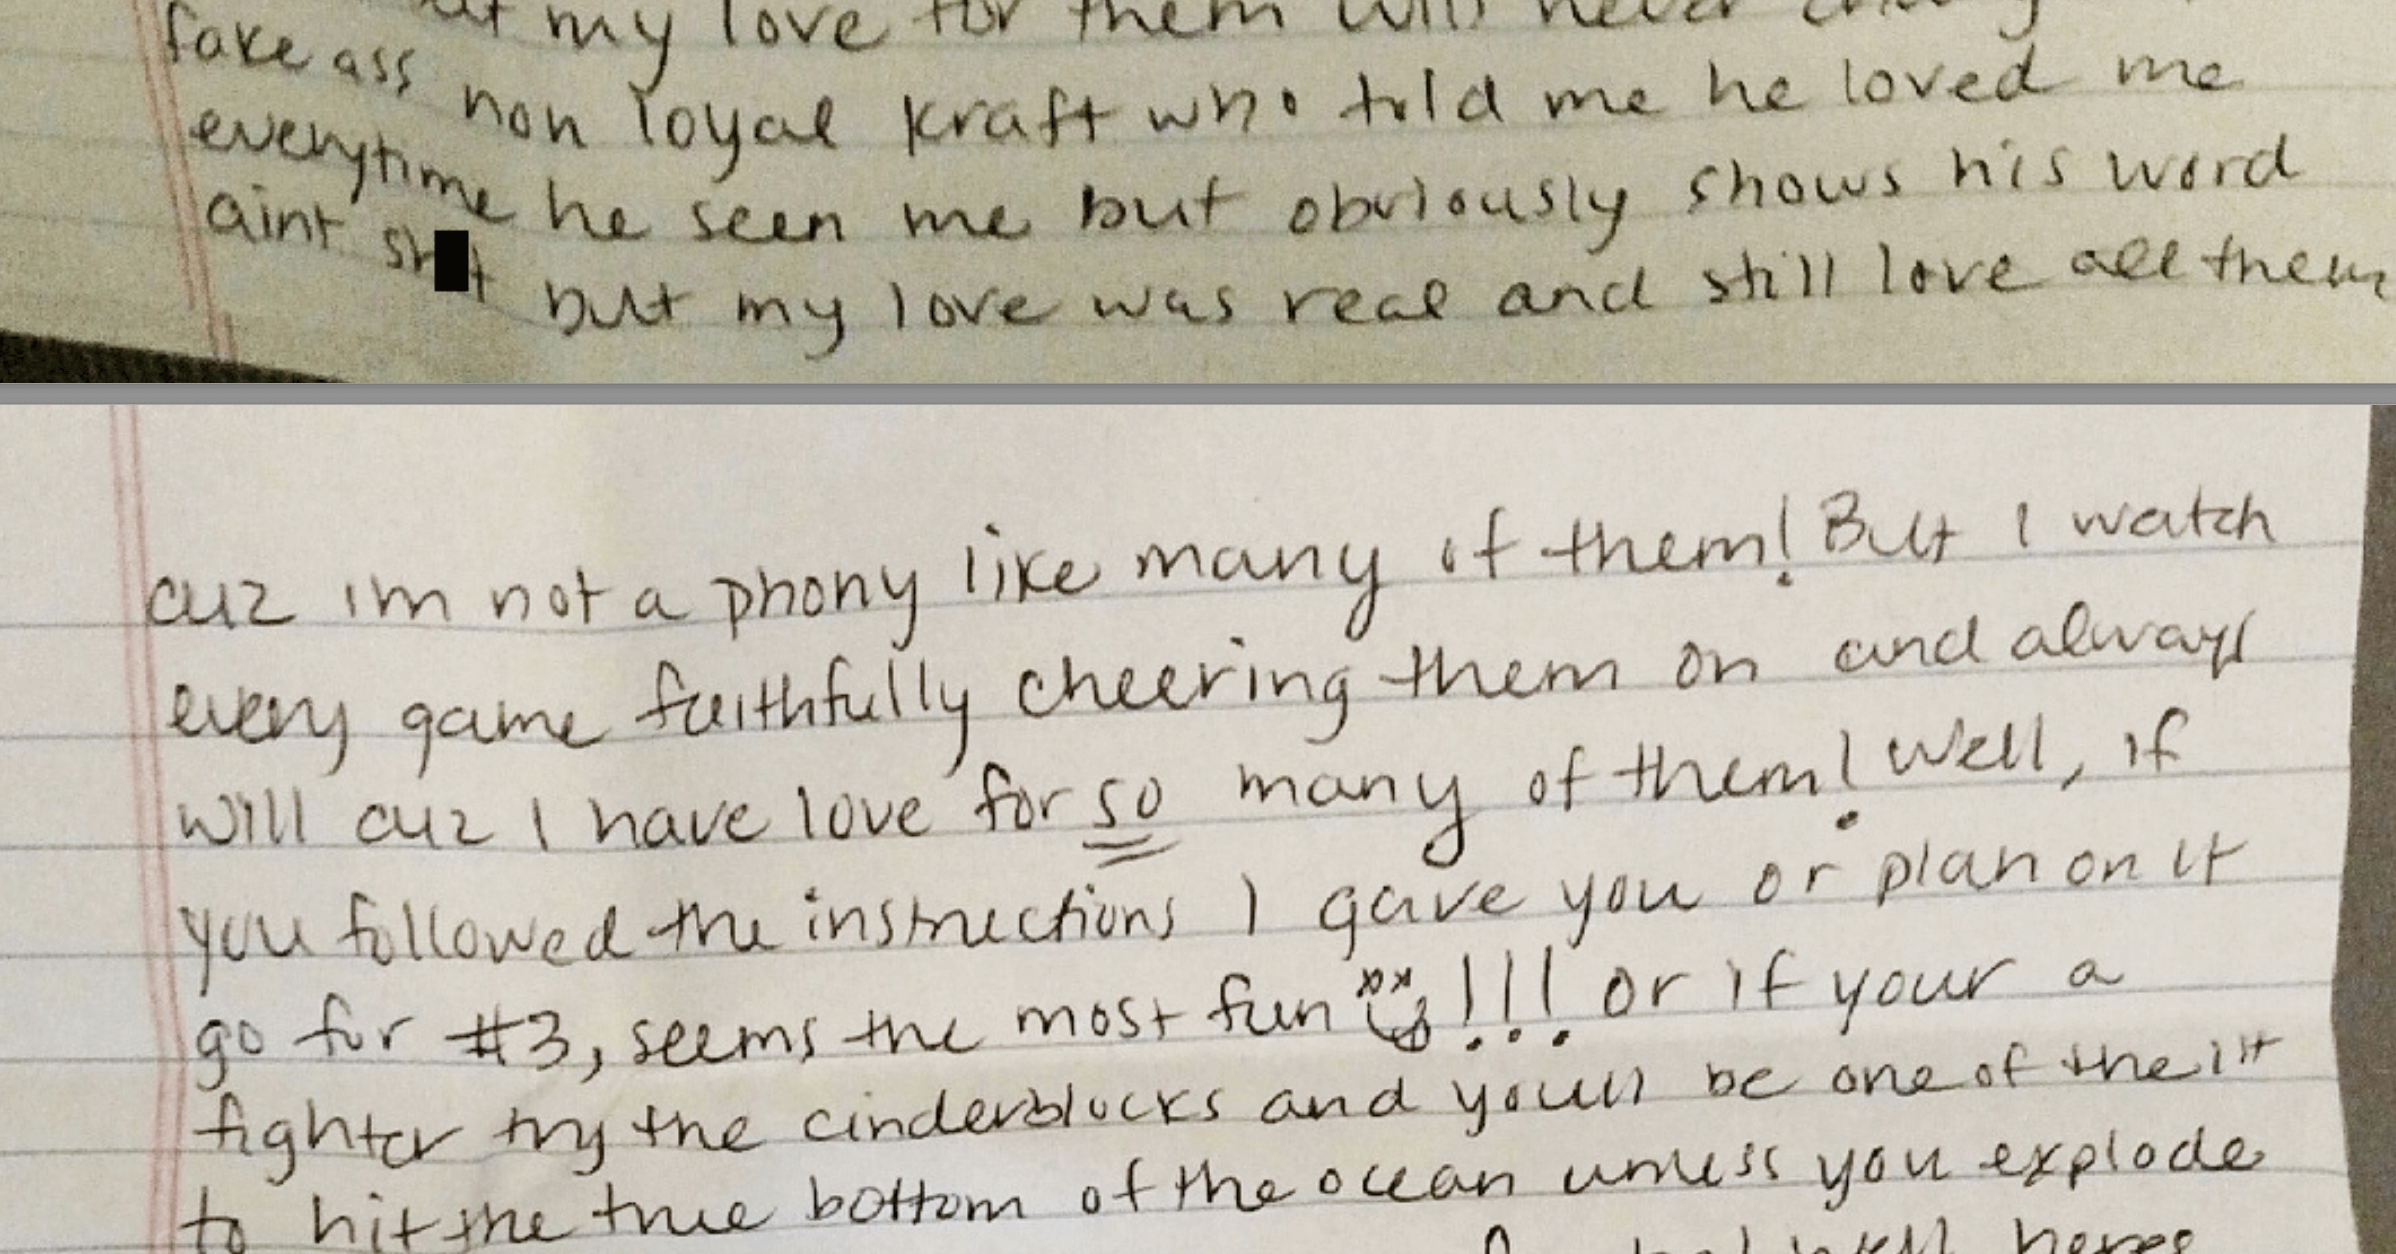 my love for them will never
fake ass non loyal kraft who told me he loved me
everytime he seen me but obviously shows his word
aint sh t but my love was real and still love all them
cuz im not a phony like many of them! But I watch
every game faithfully cheering them on and always
will cuz I have love for so many of them! Well, if
you followed the instructions I gave you or plan on it
go for #3, seems the most fun !!! or if your a
fighter try the cinderblocks and youll be one of the 1st
to hit the true bottom of the ocean unless you explode
well heres